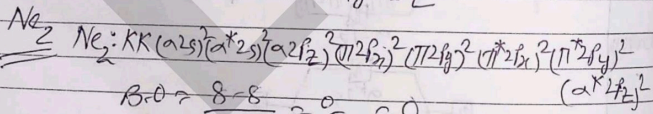 Ne₂
Ne₂: KK (σ2s)² (σ*2s)² (σ2pz)² (π2px)² (π2py)² (π*2px)² (π*2py)²
(σ*2pz)²
B.O = 8-8
= 0 = 0